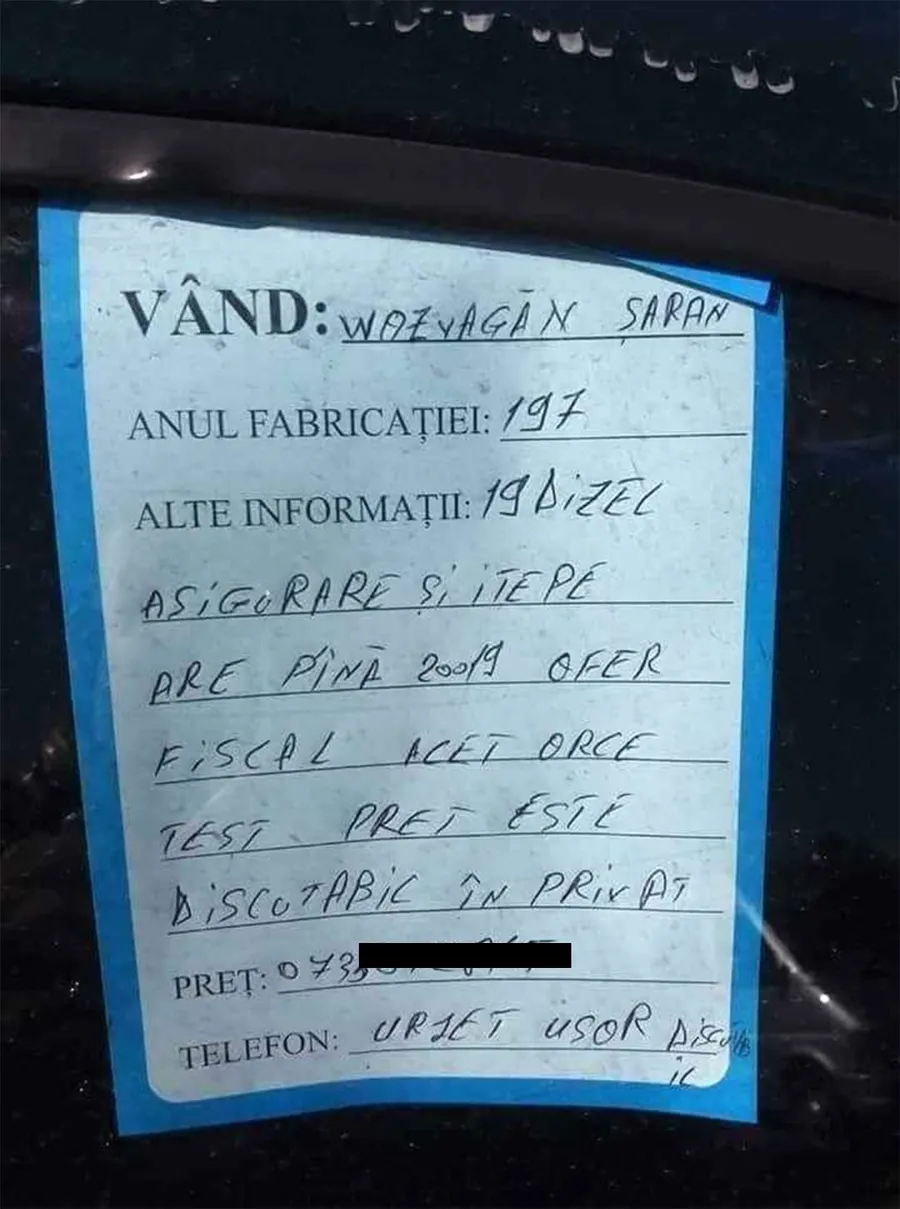 VÂND: WOZVAGĂN ȘARAN
ANUL FABRICAȚIEI: 197
ALTE INFORMAȚII: 19 DiZEL
ASiGURARE Și iTEPE
ARE PÎNĂ 20019 OFER
FiSCAL ACET ORCE
TEST PREȚ ESTE
DiSCUTABiL ÎN PRiVAT
PREȚ: 073
TELEFON: URJET USOR DiSCUTAB
iL